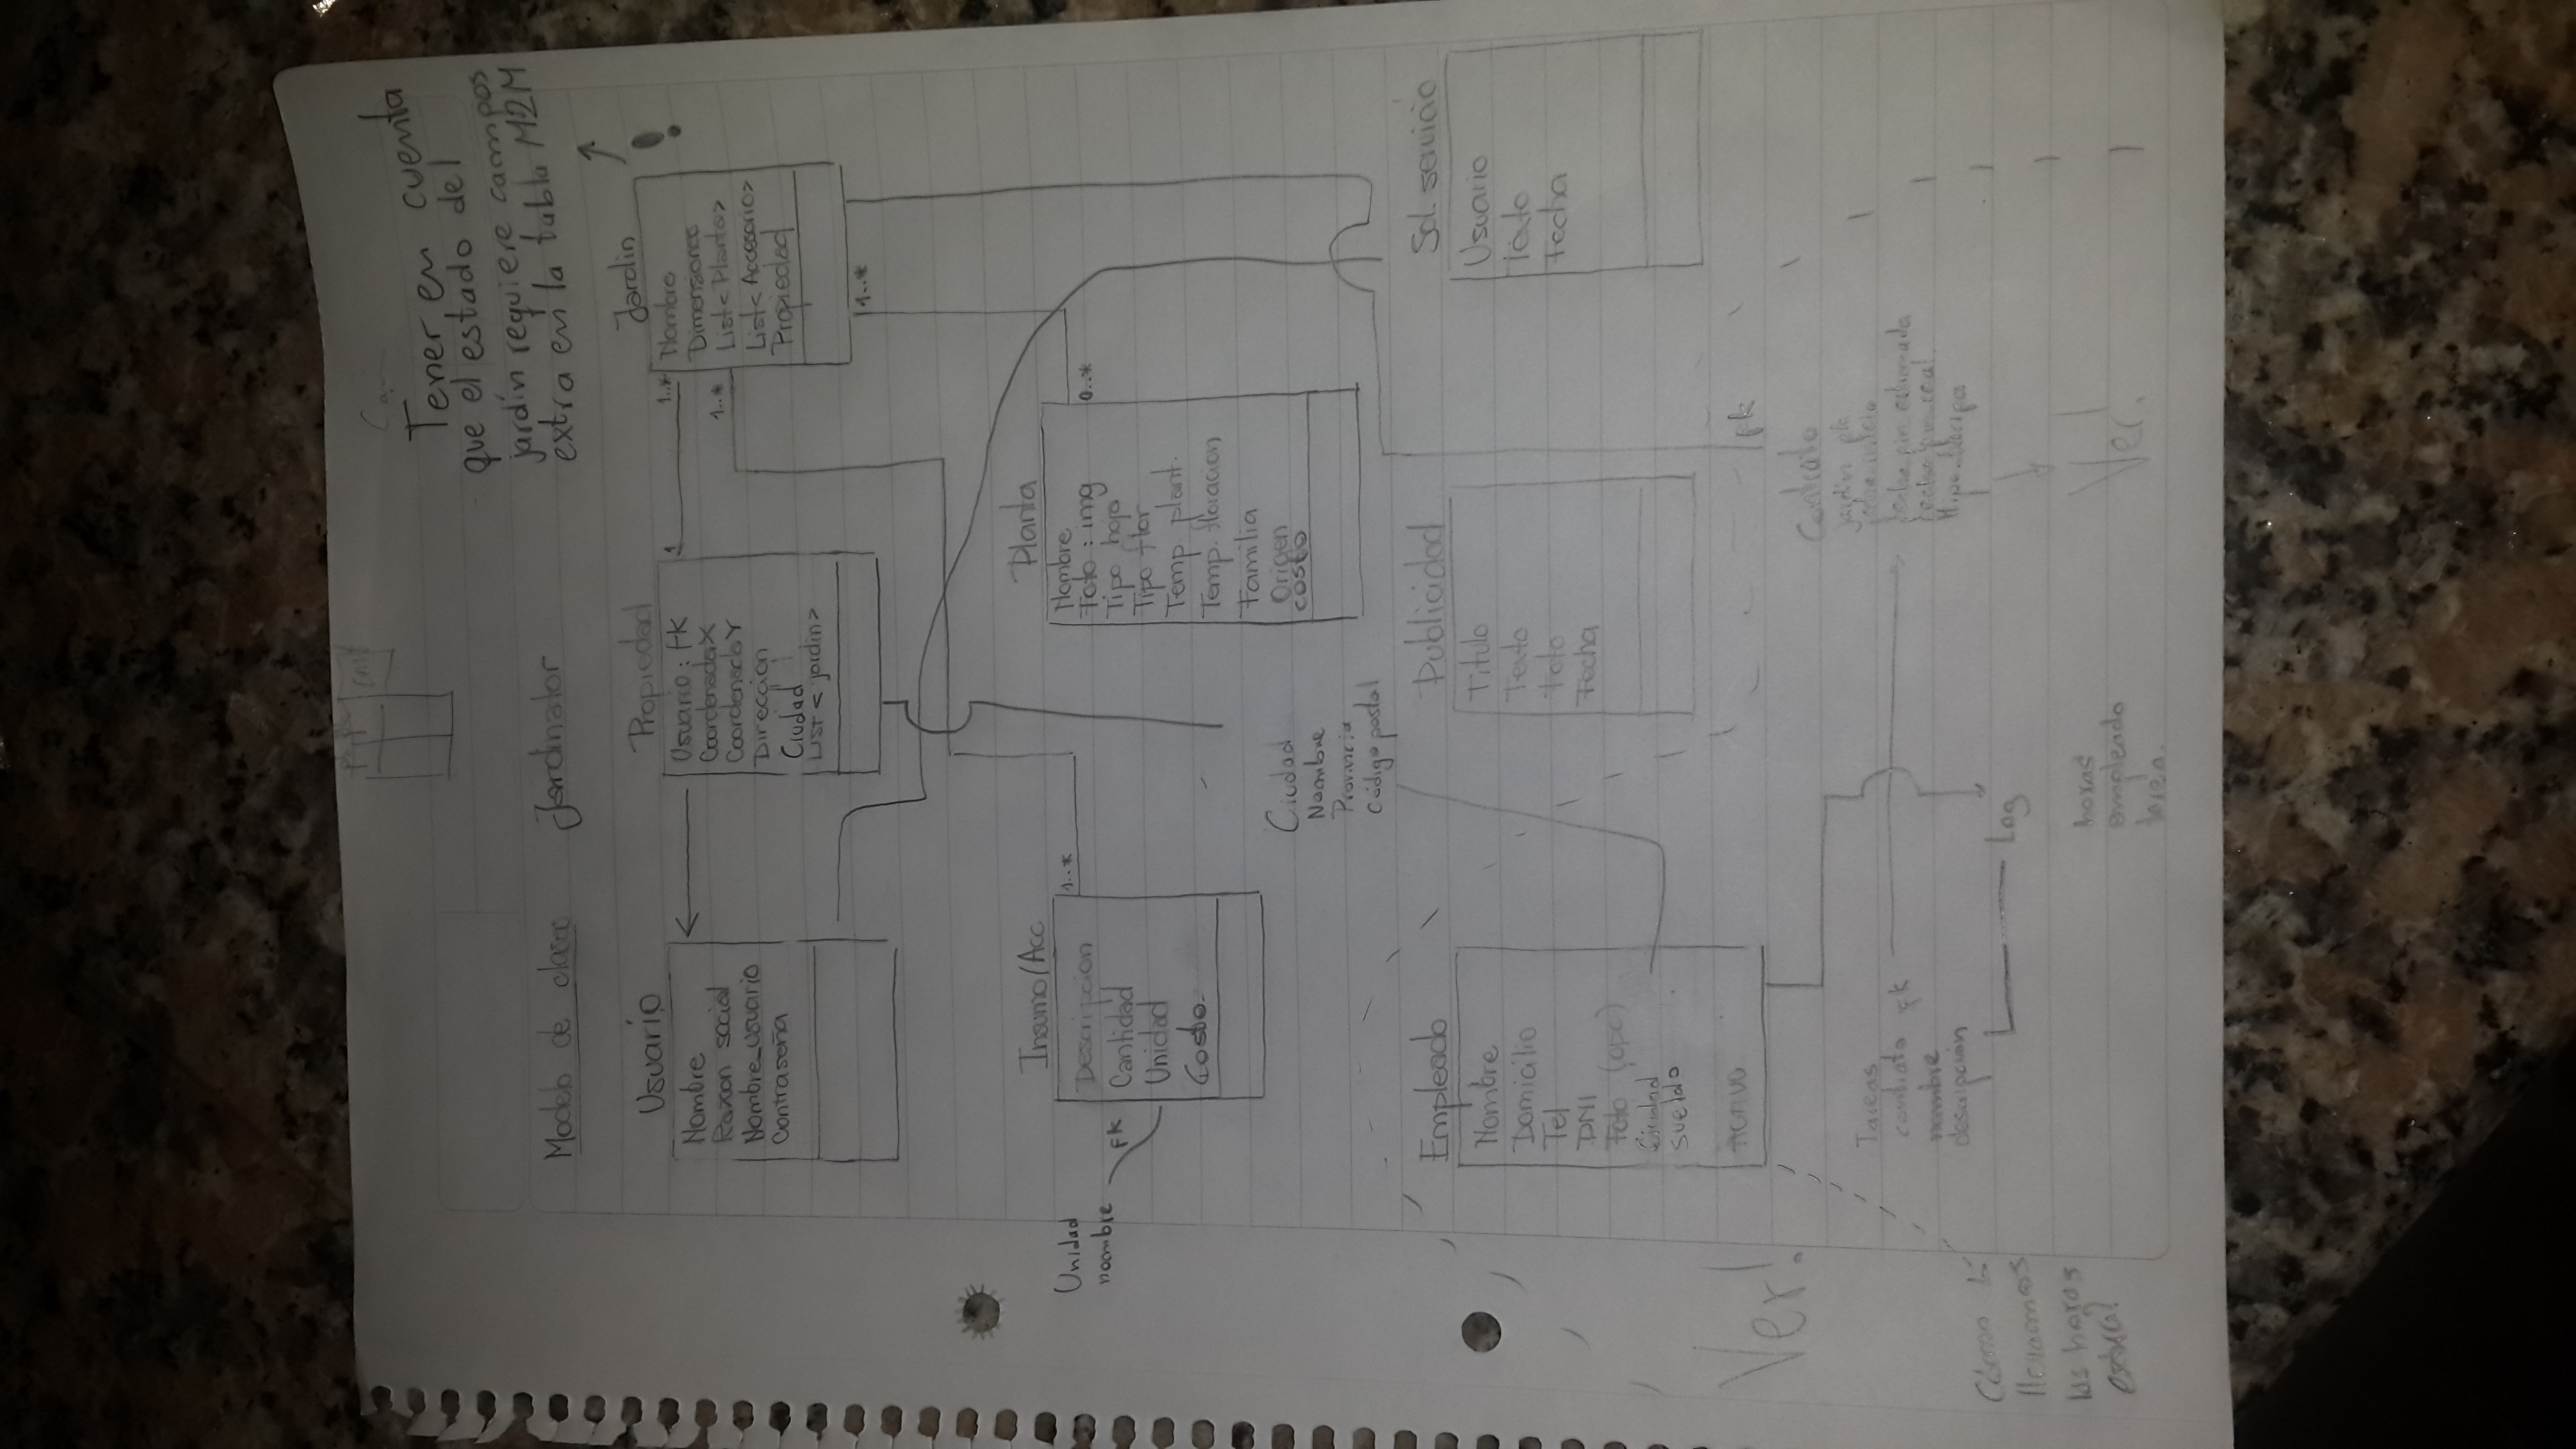 Tener en cuenta
que el estado del
jardín requiere campos
extra en la tabla M2M
!
Modelo de clases
Jardinator
Usuario
Nombre
Razon social
Nombre_usuario
Contraseña
Propiedad
Usuario : fk
CoordenadaX
CoordenadaY
Dirección
Ciudad
List < jardin>
1
1..*
Jardin
Nombre
Dimensiones
List<Planta>
List<Accesorio>
Propiedad
1..*
1..*
Insumo/Acc
Descripcion
Cantidad
Unidad
Costo
1..*
Unidad
nombre
fk
Planta
Nombre
Foto : img
Tipo hoja
Tipo flor
Temp. plant.
Temp. floracion
Familia
Origen
costo
0..*
Ciudad
Nombre
Provincia
Código postal
Empleado
Nombre
Domicilio
Tel
DNI
Foto (opc)
Ciudad
sueldo
Activo
Publicidad
Titulo
Texto
Foto
Fecha
Sol. servicio
Usuario
Texto
Fecha
Ver!
fk
Tareas
contrato fk
nombre
descripción
Contrato
jardin fk
fecha inicio
fecha fin estimada
fecha fin real
Log
horas
empleado
tarea.
Ver!
Cómo
llevamos
las horas
extra?